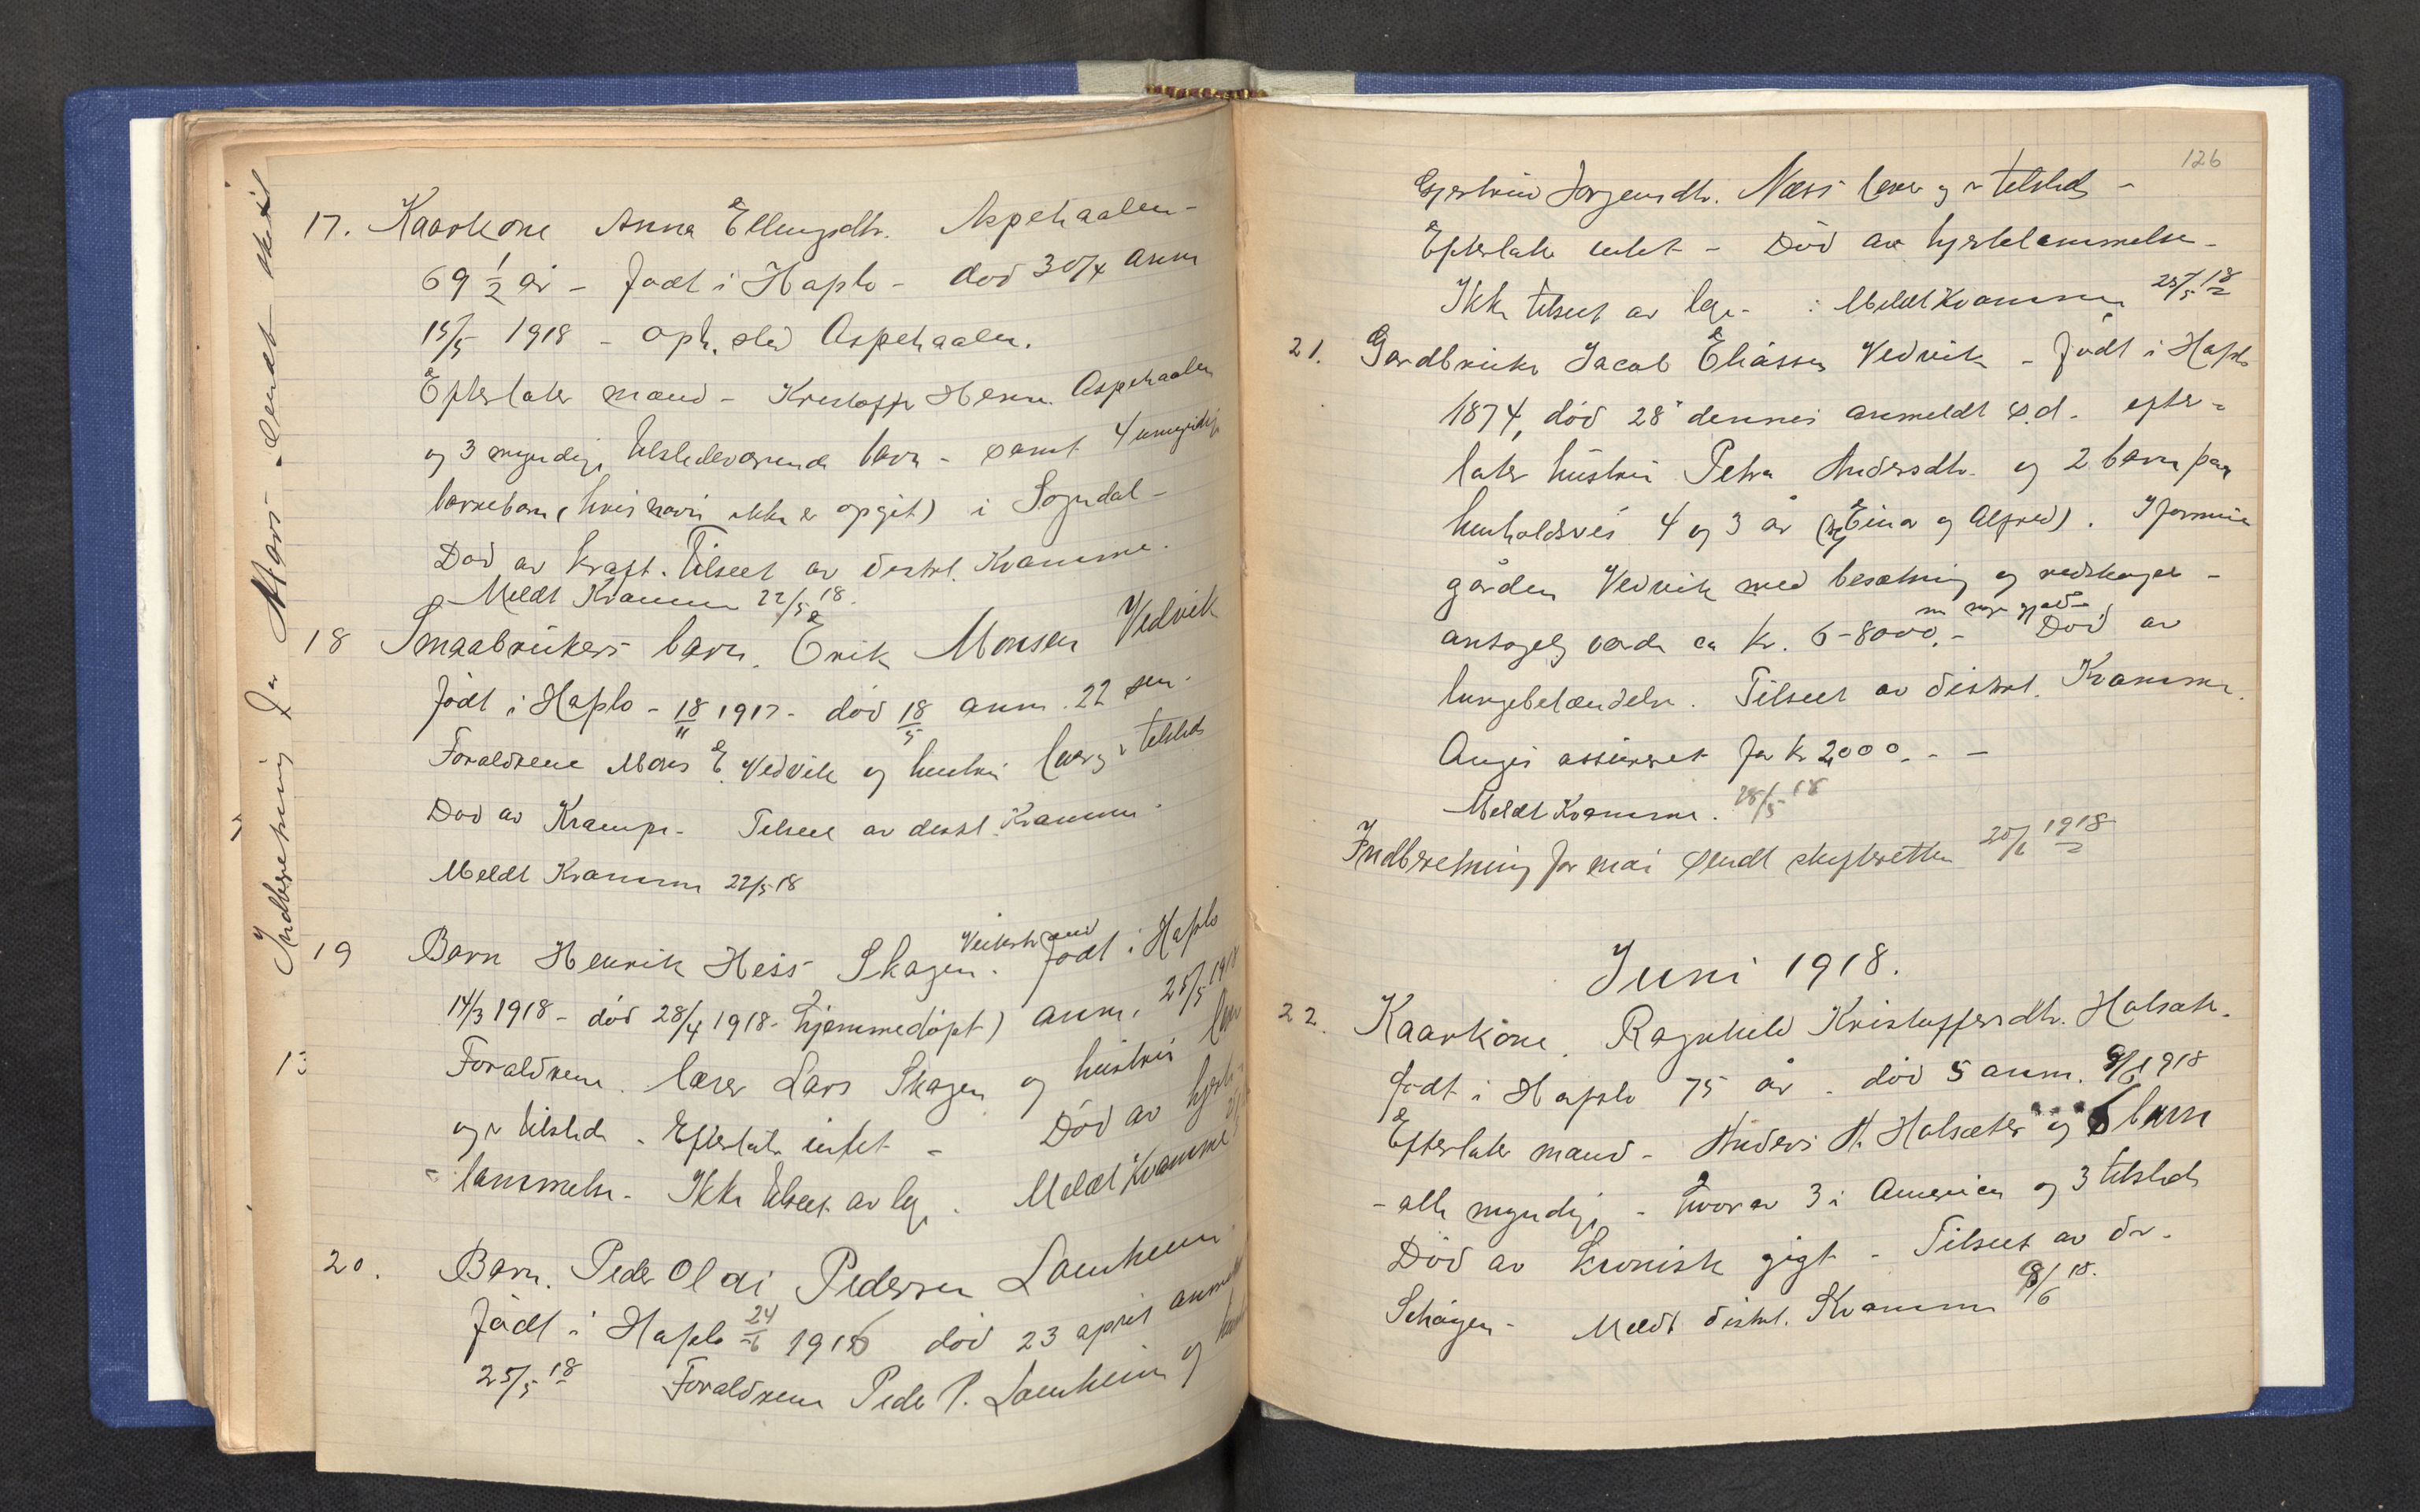 Indberetning for Mars. sendt
17. Kaarkone Anna Ellingsdtr. Aspehaalen -
69 1/2 år - født i Hafslo - død 30/4 anm
15/5 1918 - oph. sted Aspehaalen.
Efterlater mand - Kristoffer Henr. Aspehaalen
og 3 myndige tilstedeværende barn - samt 4 umyndige
barnebarn (hvis navn ikke er opgit) i Sogndal -
Død av kræft. Tilseet av distrl. Kvamme.
Meldt Kvamme 22/5 18.
18 Smaabrukers barn. Erik Monsen Vedvik
født i Hafslo - 18/11 1917 - død 18/5 anm. 22 sm.
Forældrene Mons E. Vedvik og hustru lever og er tilsteds
Død av Krampe - Tilseet av distl. Kvamme -
Meldt Kvamme 22/5 18
19 Barn Henrik Hess Skagen. Veitestrand født i Hafslo
14/3 1918 - død 28/4 1918 - hjemmedøpt) anm. 25/5 1918
13
Forældrene lærer Lars Skagen og hustru lever
og er tilstede - Efterlater intet - Død av hjerte-
lammelse - Ikke tilseet av læge. Meldt Kvamme
20. Barn. Peder Olai Pedersen Lomheim
født i Hafslo 24/6 1916 død 23 april anmeldt
25/5 18 Forældrene Peder P. Lomheim og
126
Gjertrud Jørgensdtr. Næss lever og er tilsteds -
Efterlater intet - Død av hjertelammelse -
Ikke tilseet av læge - : Meldt Kvamme 25/5 18
21. Gardbruker Jacob Eliassen Vedvik - født i Hafslo
1874, død 28' dennes anmeldt s.d. efter-
later hustru Petra Andersdtr. og 2 barn paa
henholdsvis 4 og 3 år (Einar og Alfred). I formue
gården Vedvik med besætning og redskaper -
antagelig værdi ca kr. 6-8000.- noe gjæld Død av
lungebetændelse. Tilseet av distrl. Kvamme.
Angis assureret for kr 2,000. - -
Meldt Kvamme. 28/5 18
Indberetning for mai sendt skifteretten 20/6 1918
Juni 1918.
22. Kaarkone. Ragnhild Kristoffersdtr. Halsæte.
født i Hafslo 75 år - død 5 anm. 8/6 1918
Efterlater mand - Anders A. Halsæter og 6 barn
- alle myndige - hvorav 3 i Amerika og 3 tilsteds
Død av kronisk gigt - Tilseet av dr.
Schøyen - Meldt distrl. Kvamme 8/6 18.